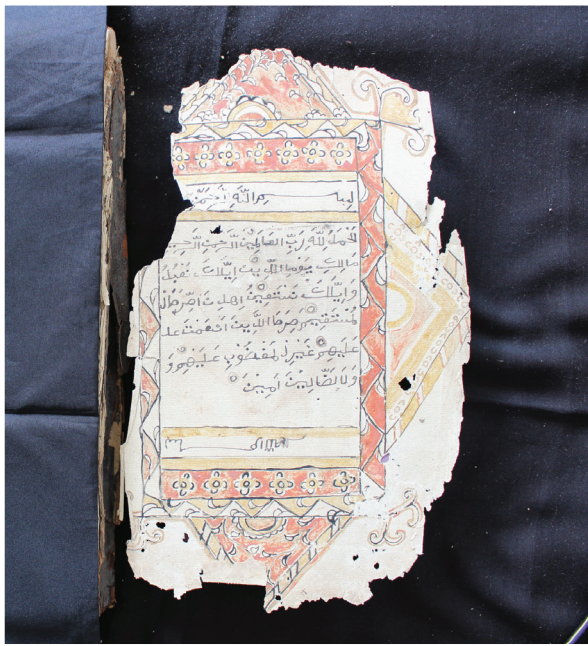 بسم اللَّهِ الرَحْمَنِ
لْحَمْدُ لِلَّهِ رَبِّ العَالَمِينَ الرَّحْمَنِ الرَّحِيمِ
مَالِكِ يَوْمِ الدِّينِ إِيَّاكَ نَعْبُدُ
وَإِيَّاكَ نَسْتَعِينُ اهْدِنَا صِّرَطَ ال
لْمُسْتَقِيمَ صِرَطَ الَّذِينَ انْعَمْتَ عل
عَلَيْهِمْ غَيْرِ لمَغْضُوبِ عَلَيْهِمْ وَ
وَلَا لضَّالِّينَ امِينَ